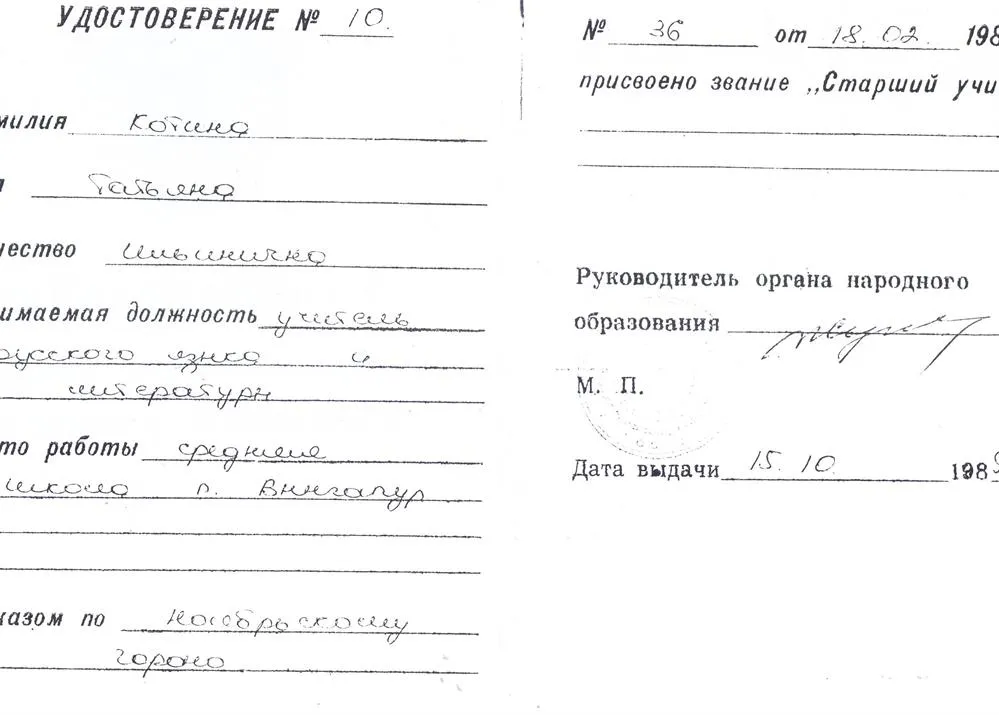 УДОСТОВЕРЕНИЕ № 10.
милия Котина
Татьяна
чество Ильинична
имаемая должность учитель
русского языка и
литературы
то работы средняя
школа п. Вынгапур
казом по Ноябрьскому
гороно
№ 36 от 18.02. 198
присвоено звание „Старший учи
Руководитель органа народного
образования
М. П.
Дата выдачи 15.10. 198